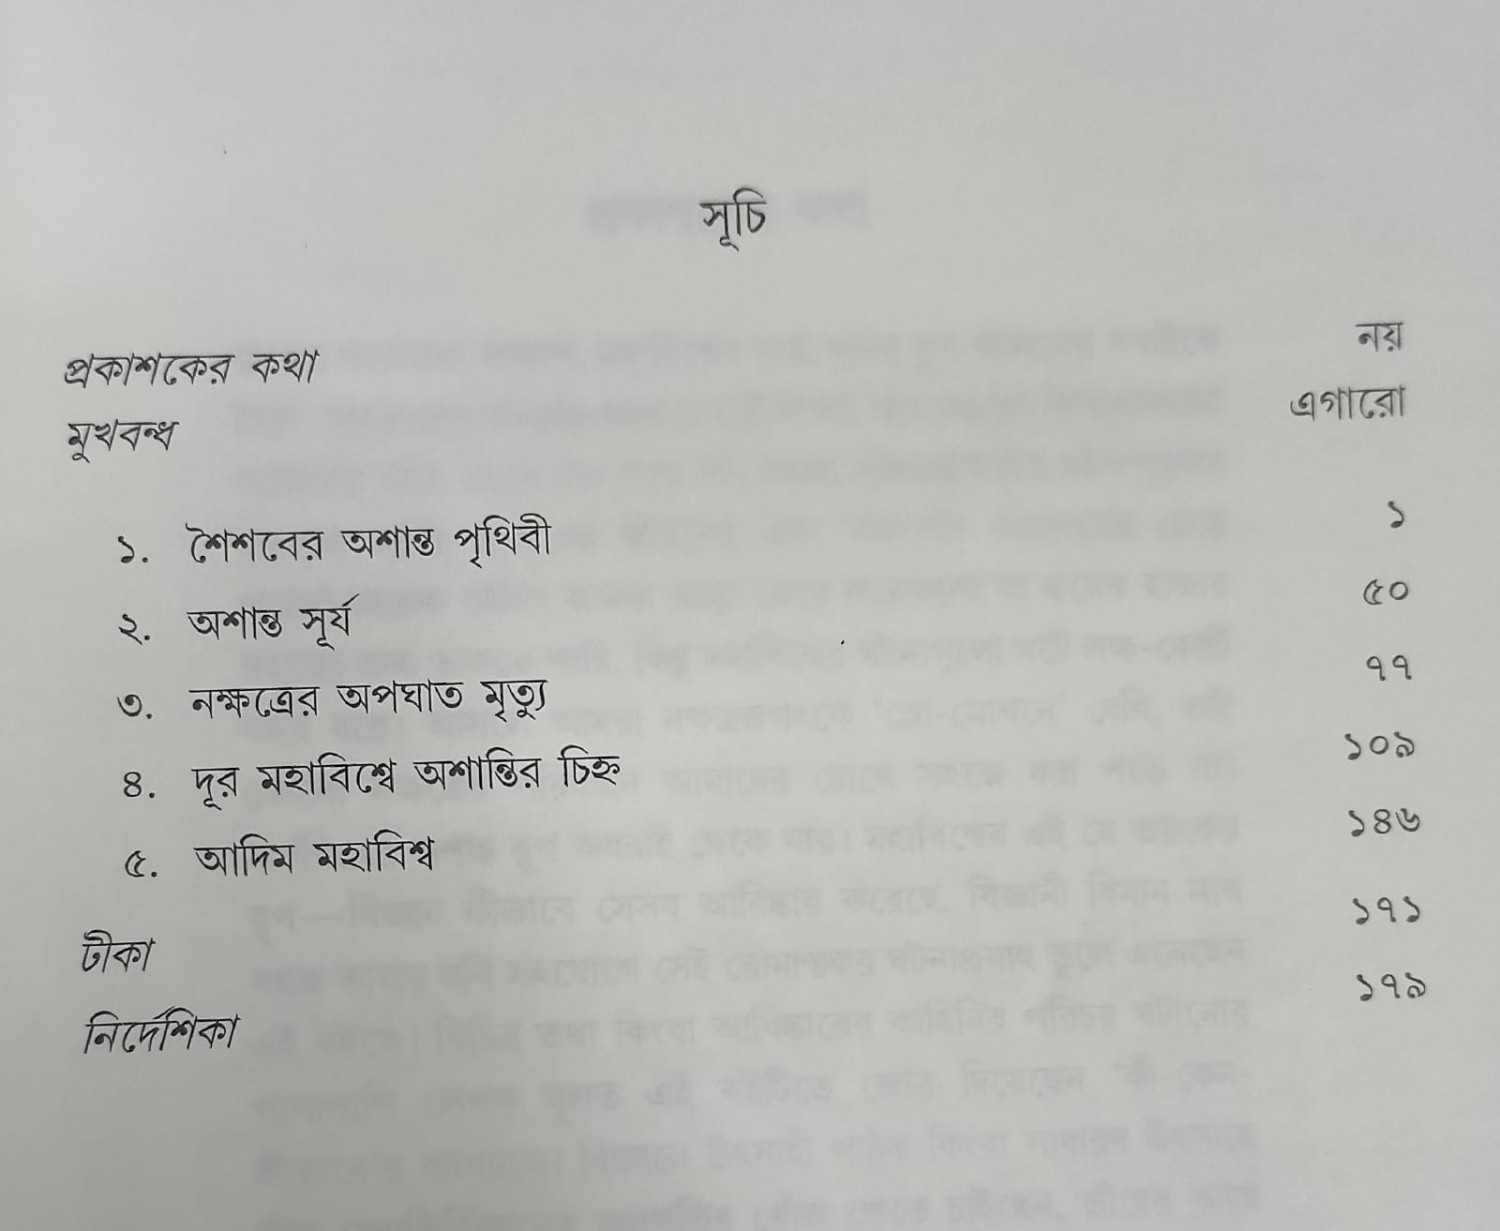 সূচি
প্রকাশকের কথা নয়
মুখবন্ধ এগারো
১. শৈশবের অশান্ত পৃথিবী ১
২. অশান্ত সূর্য ৫০
৩. নক্ষত্রের অপঘাত মৃত্যু ৭৭
৪. দূর মহাবিশ্বে অশান্তির চিহ্ন ১০৯
৫. আদিম মহাবিশ্ব ১৪৬
টীকা ১৭১
নির্দেশিকা ১৭৯